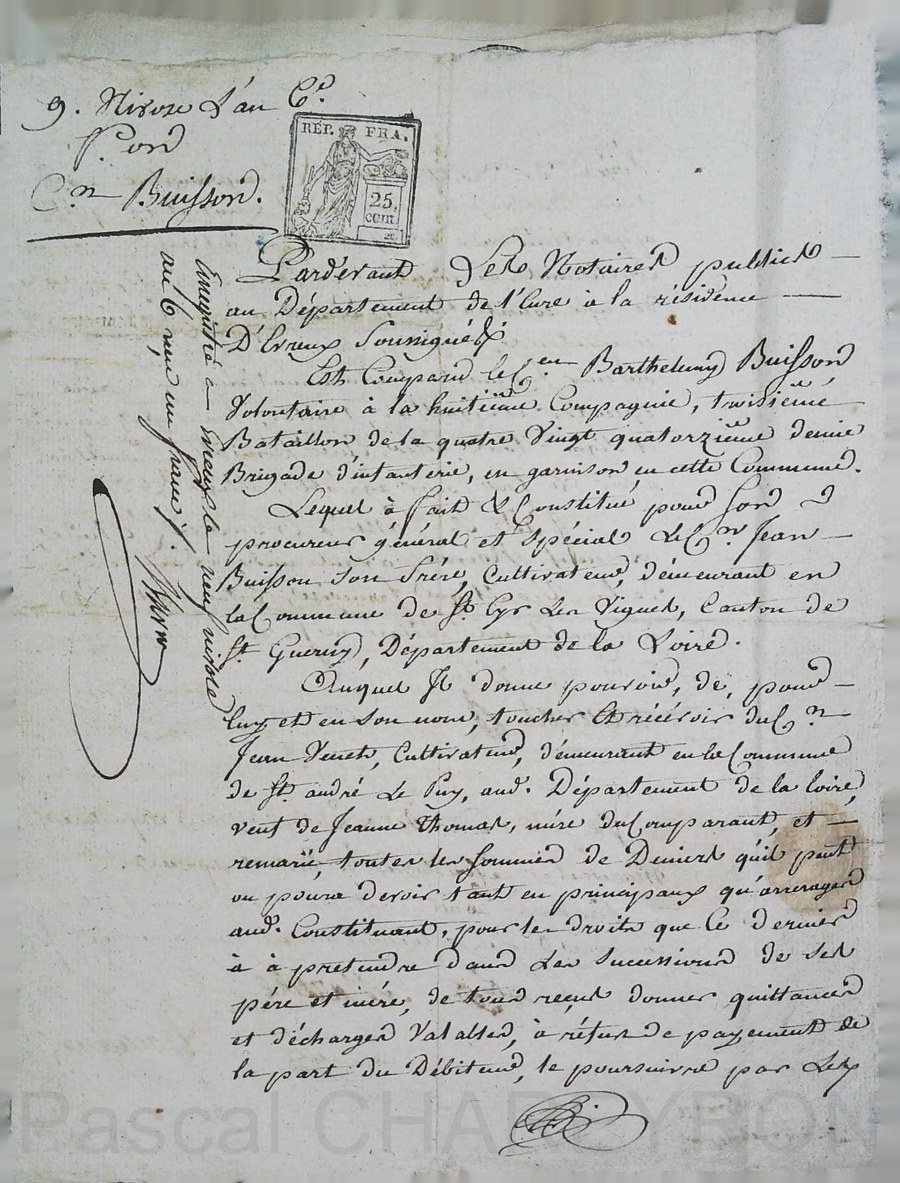 9. Nivose L'an 6.e
P.on
C.en Buisson.
RÉP. FRA.
25.
cent.
Pardevant Les Notaires publics
au Département de l'Eure à la résidence
D'Evreux Soussignés
Est Comparu le C.en Barthelemy Buisson
Volontaire à la huitieme Compagnie, troisieme
Bataillon de la quatre Vingt quatorzieme demie
Brigade d'infanterie, en garnison en cette Commune.
Lequel à fait & Constitué pour son
procureur général et spécial Le C.en Jean
Buisson son frére, Cultivateur, démeurant en
la Commune de St. Cyr Les Vignes, Canton de
St. Guerny, Département de la Loire.
Auquel Il donne pouvoir, de, pour
luy et en son nom, toucher et récévoir du C.en
Jean Cultivateur, démeurant en la Commune
de St. andré Le Puy, aud. Département de la loire,
veuf de Jeanne Thomas, mére du Comparant, et
remarié, toutes les sommes de Deniers qu'il peut
ou poura devoir tant en principaux qu'arrerages
aud. Constituant, pour les droits que Ce dernier
à à prétendre dans Les Successions de ses
pére et mére, de tous reçus donner quittances
et décharges Valables, à réfus de payement de
la part du Débiteur, le poursuivre par Les
Enregistré à Evreux le neuf nivose
an 6, reçu un franc
Pascal CHAMBEYRON